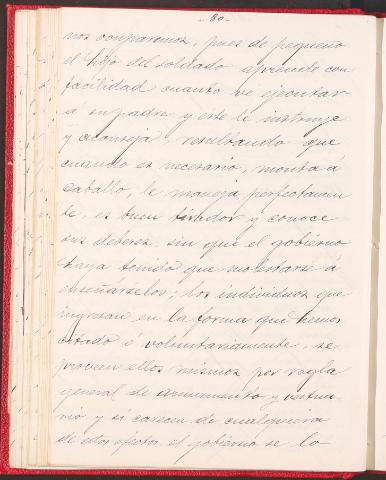 - 80 -
nos comparemos, pues de pequeño
el hijo del soldado aprende con
facilidad cuanto ve ejecutar
á su padre y este le instruye
y aconseja, resultando que
cuando es necesario, monta á
caballo, le maneja perfectamen
te, es buen tirador y conoce
sus deberes sin que el gobierno
haya tenido que molestarse á
enseñárselos; los individuos que
ingresan en la forma que hemos
citado ó voluntariamente, se
proveen ellos mismos por regla
general de armamento y vestua
rio y si carecen de cualquiera
de estos efectos el gobierno se lo